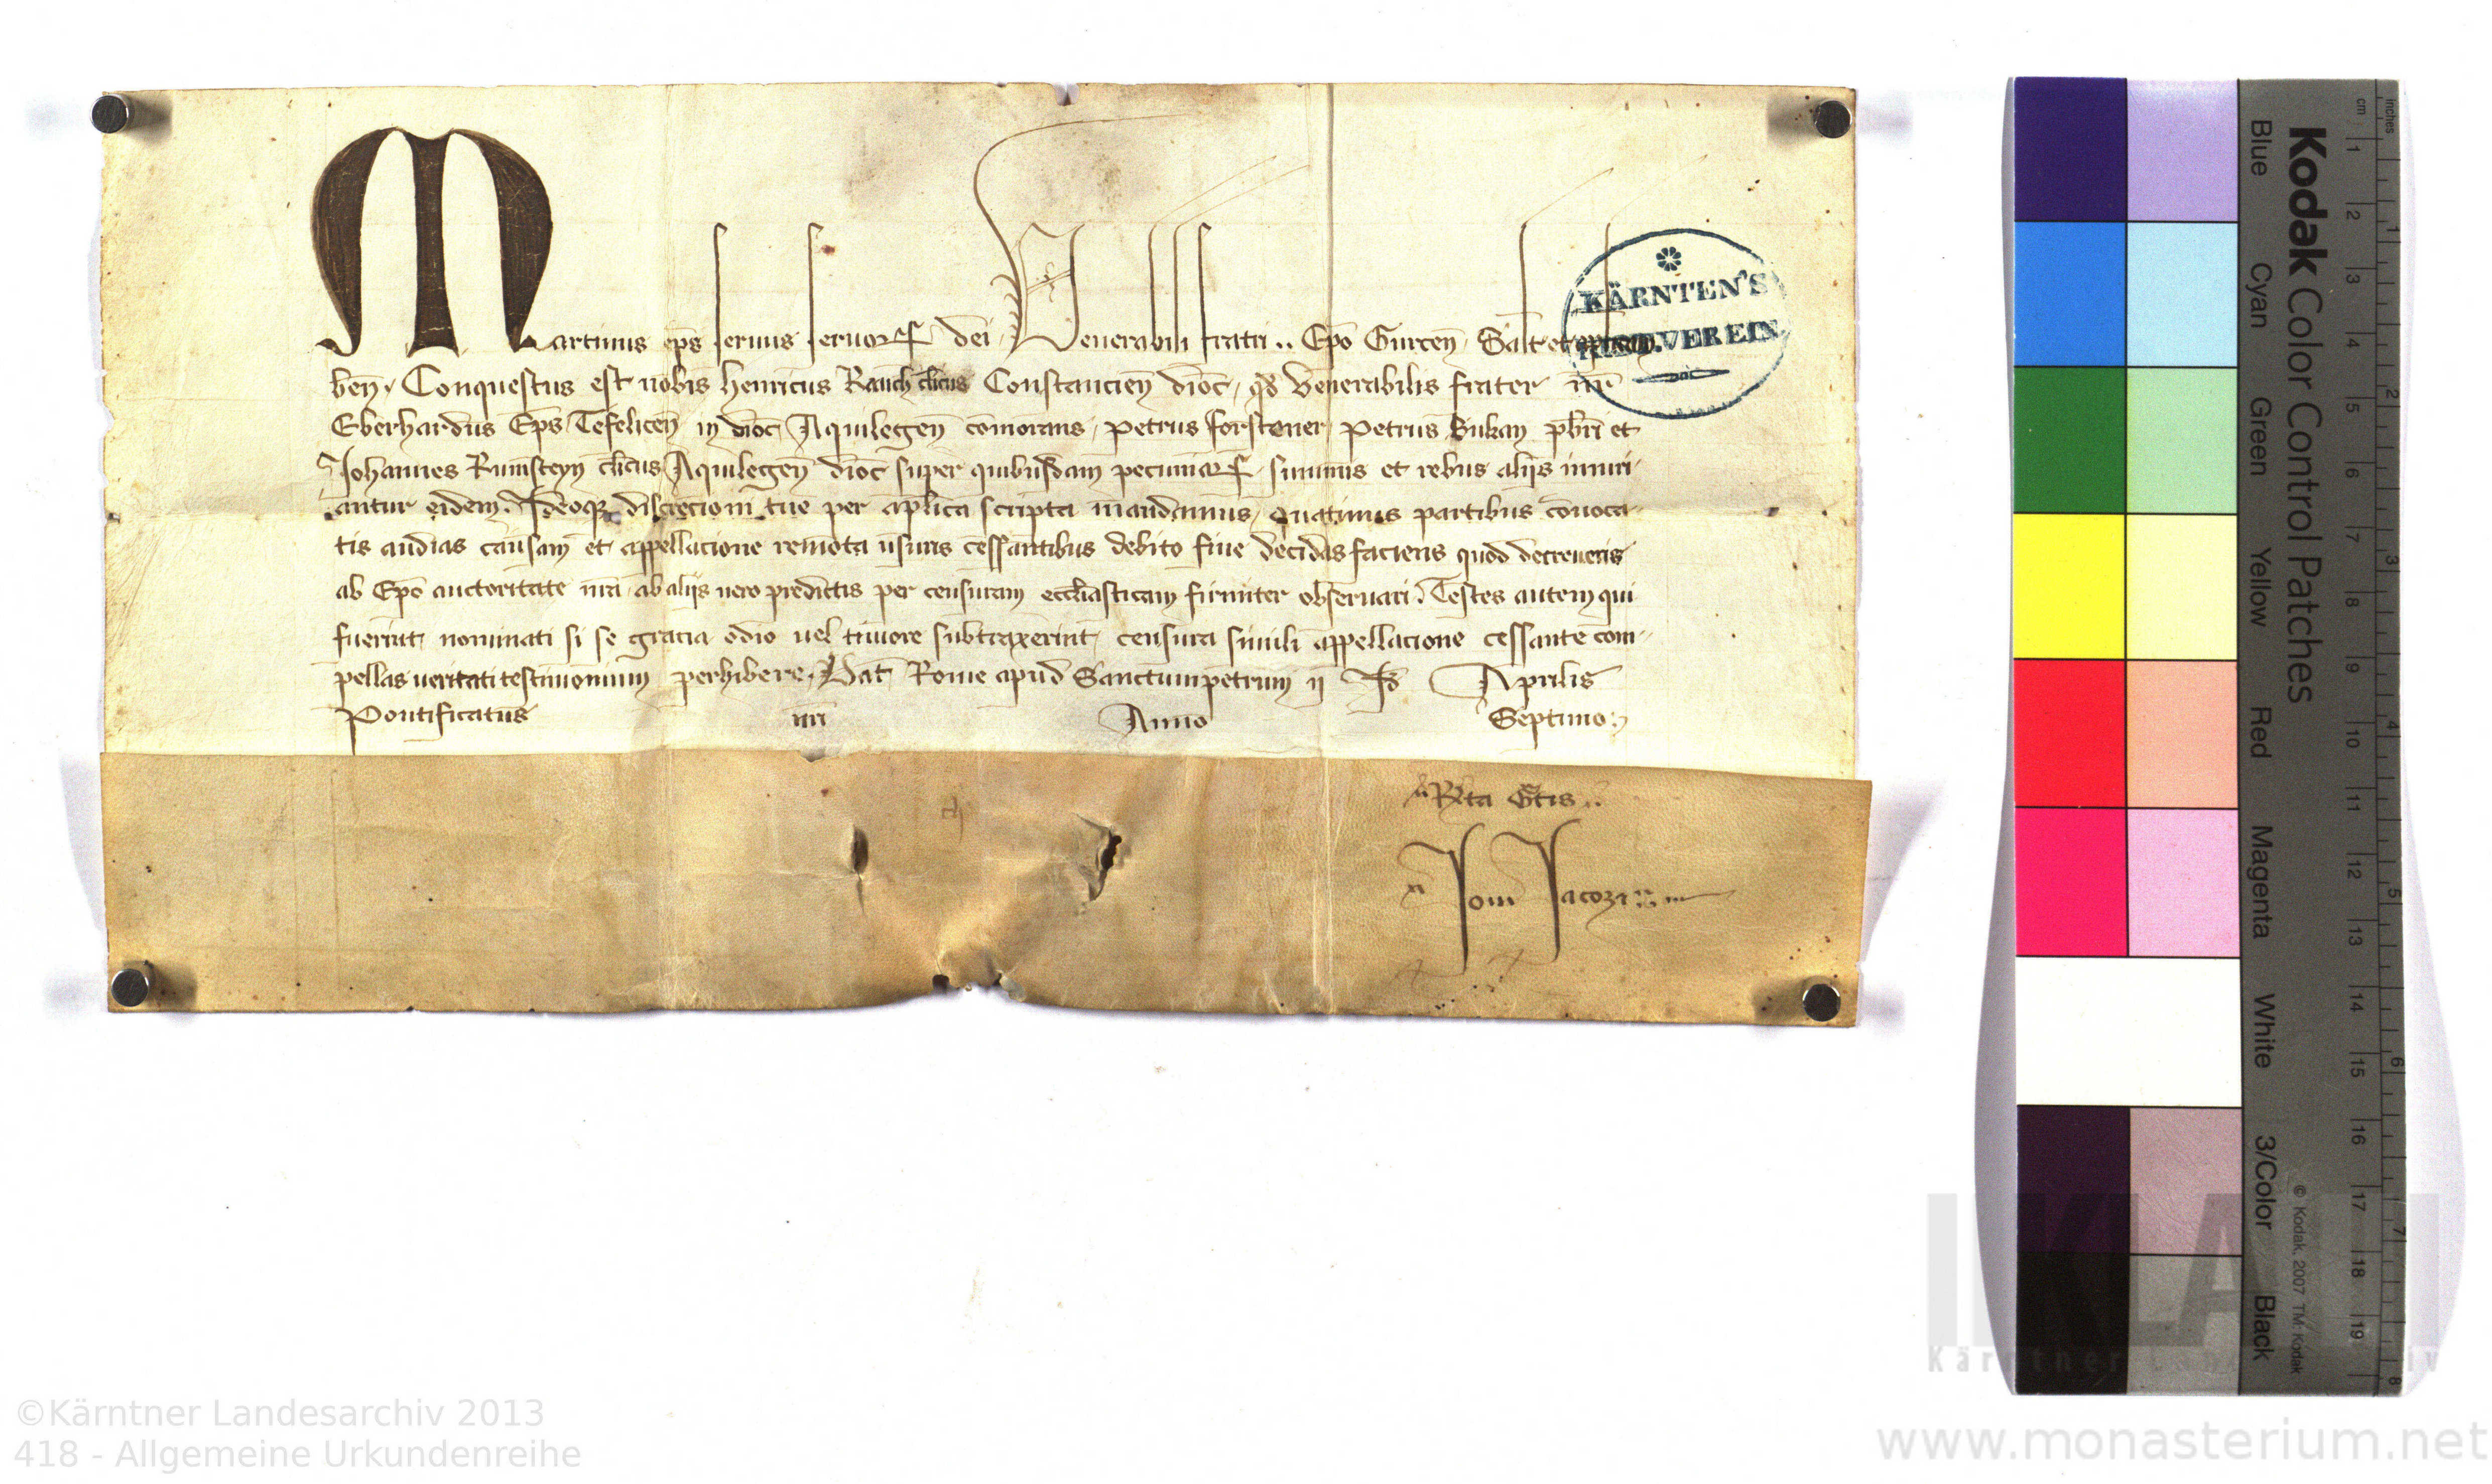 Martinus ep̄s seruus seruoꝝ dei Venerabili fratri .. Ep̄o Gurcen̄ Salt̄ et
ben̄ Conquestus est nobis henricus Rauch cl̄icus Constancien̄ dioc̄ qd̄ Venerabilis frater nr̄
Eberhardus Ep̄s Tefelicen̄ in dioc̄ Aquilegen̄ com̄orans petrus forstener petrus p̄br̄i et
Johannes Rumsteyn cl̄icus Aquilegen̄ dioc̄ super quibusdam pecuniaꝝ summis et rebus alijs iniuri-
antur eidem. Ideoqꝫ discrecioni tue per ap̄lica scripta mandamus quatinus partibus conuoca-
tis audias causam et appellacione remota usuris cessantibus debito fine decidas faciens quod decreueris
ab Ep̄o auctoritate nr̄a ab alijs uero predictis per censuram eccl̄iasticam firmiter obseruari. Testes autem qui
fuerint nominati si se gracia odio uel timore subtraxerint censura simili appellacione cessante com-
pellas ueritati testimonium perhibere. Dat̄ Rome apud Sanctumpetrum ij Id̄ Aprilis
Pontificatus nr̄i Anno Septimo
KÄRNTEN'S
HIST. VEREIN
Rta Gtis
Jacobi
Kodak Color Control Patches
Blue Cyan Green Yellow Red Magenta White 3/Color Black
© Kodak, 2007 TM: Kodak
cm 1 2 3 4 5 6 7 8 9 10 11 12 13 14 15 16 17 18 19
Inches 1 2 3 4 5 6 7 8
©Kärntner Landesarchiv 2013
418 - Allgemeine Urkundenreihe
www.monasterium.net